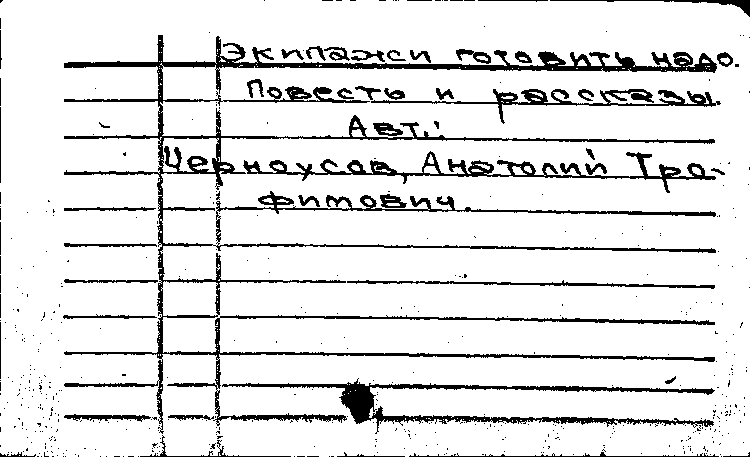 Экипажи готовить надо.
Повесть и рассказы.
Авт.:
Черноусов, Анатолий Тро-
фимович.